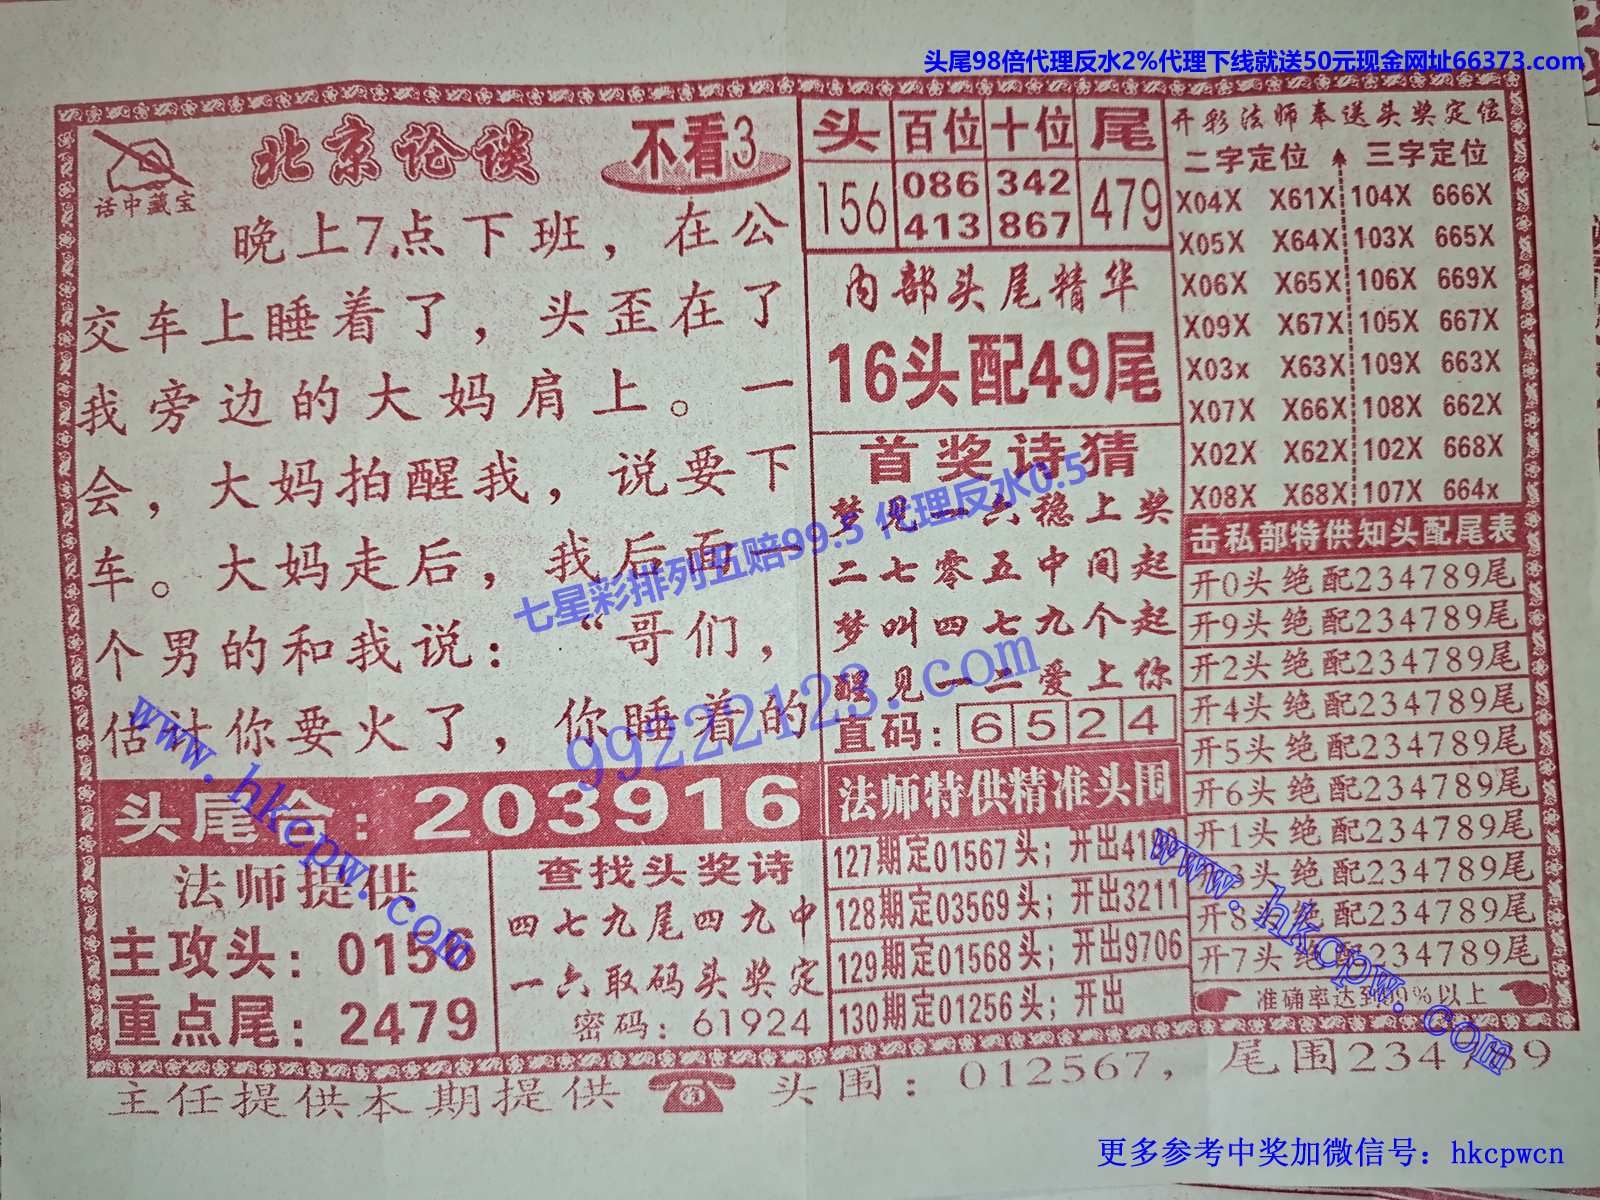 头尾98倍代理反水2%代理下线就送50元现金网址66373.com
话中藏宝
北京论谈
不看3
晚上7.点下班，在公
交车上睡着了，头歪在了
我旁边的大妈肩上。一
会，大妈拍醒我，说要下
车。大妈走后，我后面一
个男的和我说：“哥们，
估计你要火了，你睡着的
头尾合：203916
法师提供
主攻头：0156
重点尾：2479
查找头奖诗
四七九尾四九中
一六取码头奖定
密码：61924
头 百位 十位 尾
156 086 342 479
413 867
内部头尾精华
16头配49尾
首奖诗猜
梦见一六稳上奖
二七零五中间起
梦叫四七九个起
醒见一二爱上你
直码：6524
法师特供精准头围
127期定01567头；开出41
128期定03569头；开出3211
129期定01568头；开出9706
130期定01256头；开出
开彩法师奉送头奖定位
二字定位 三字定位
X04X X61X 104X 666X
X05X X64X 103X 665X
X06X X65X 106X 669X
X09X X67X 105X 667X
X03x X63X 109X 663X
X07X X66X 108X 662X
X02X X62X 102X 668X
X08X X68X 107X 664x
击私部特供知头配尾表
开0头绝配234789尾
开9头绝配234789尾
开2头绝配234789尾
开4头绝配234789尾
开5头绝配234789尾
开6头绝配234789尾
开1头绝配234789尾
开3头绝配234789尾
开8头绝配234789尾
开7头绝配234789尾
准确率达到99%以上
主任提供本期提供 头围：012567，尾围234789
七星彩排列五赔99.5 代理反水0.5
99222123.com
www.hkcpw.com
www.hkcpw.com
更多参考中奖加微信号：hkcpwcn